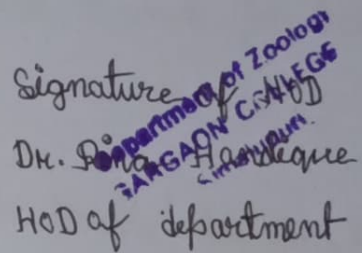 Signature of HOD
Dr. Rina Handique
HOD of department
Department of Zoology
GARGAON COLLEGE
Simaluguri